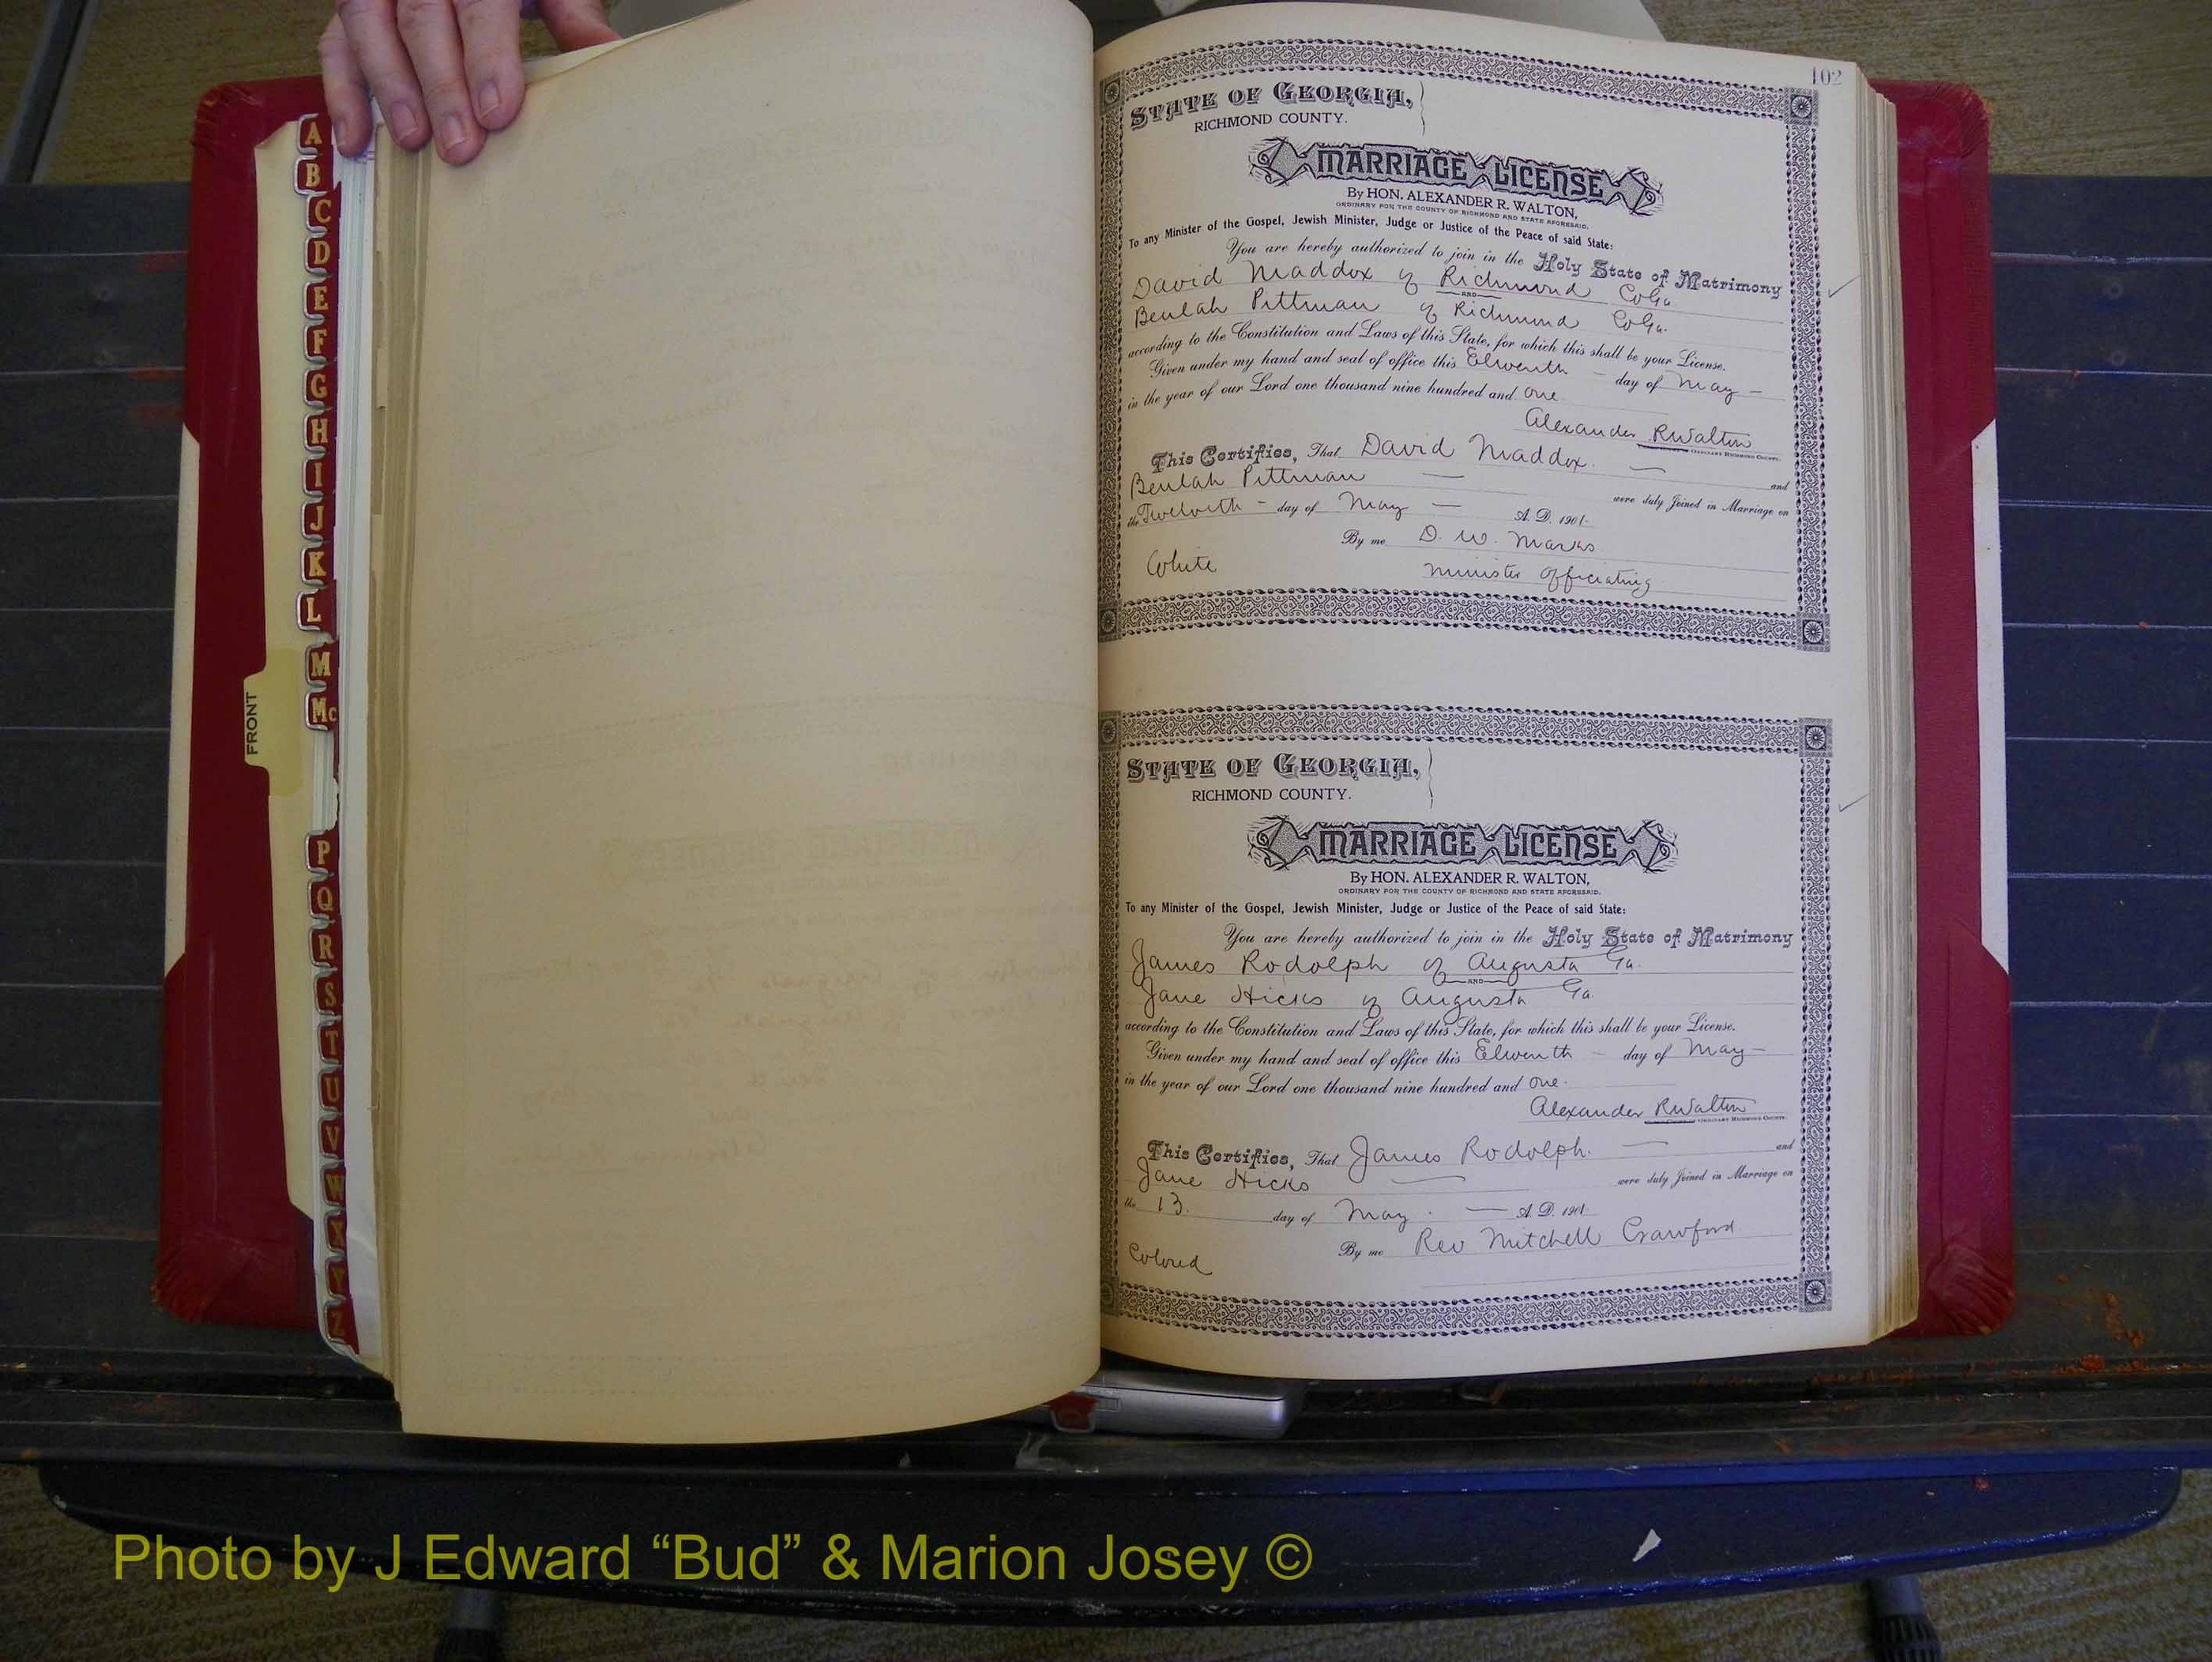 A
B
C
D
E
F
G
H
I
J
K
L
M
Mc
FRONT
P
Q
R
S
T
U
V
W
X
Y
Z
102
STATE OF GEORGIA,
RICHMOND COUNTY.
MARRIAGE LICENSE
By HON. ALEXANDER R. WALTON,
ORDINARY FOR THE COUNTY OF RICHMOND AND STATE AFORESAID.
To any Minister of the Gospel, Jewish Minister, Judge or Justice of the Peace of said State:
You are hereby authorized to join in the Holy State of Matrimony
David Maddox of Richmond Co Ga.
AND
Beulah Pittman of Richmond Co Ga.
according to the Constitution and Laws of this State, for which this shall be your License.
Given under my hand and seal of office this Elventh day of May
in the year of our Lord one thousand nine hundred and one
Alexander R Walton
ORDINARY RICHMOND COUNTY.
This Certifies, That David Maddox.
and
Beulah Pittman were duly Joined in Marriage on
the Twelvth day of May A. D. 1901.
By me D. W. Marks
White Minister Officiating
STATE OF GEORGIA,
RICHMOND COUNTY.
MARRIAGE LICENSE
By HON. ALEXANDER R. WALTON,
ORDINARY FOR THE COUNTY OF RICHMOND AND STATE AFORESAID.
To any Minister of the Gospel, Jewish Minister, Judge or Justice of the Peace of said State:
You are hereby authorized to join in the Holy State of Matrimony
James Rodolph of Augusta Ga.
AND
Jane Hicks of Augusta Ga.
according to the Constitution and Laws of this State, for which this shall be your License.
Given under my hand and seal of office this Elventh day of May
in the year of our Lord one thousand nine hundred and one.
Alexander R Walton
ORDINARY RICHMOND COUNTY.
This Certifies, That James Rodolph. and
Jane Hicks were duly Joined in Marriage on
the 13. day of May. A. D. 1901.
By me Rev Mitchell Crawford
Colored
Photo by J Edward “Bud” & Marion Josey ©